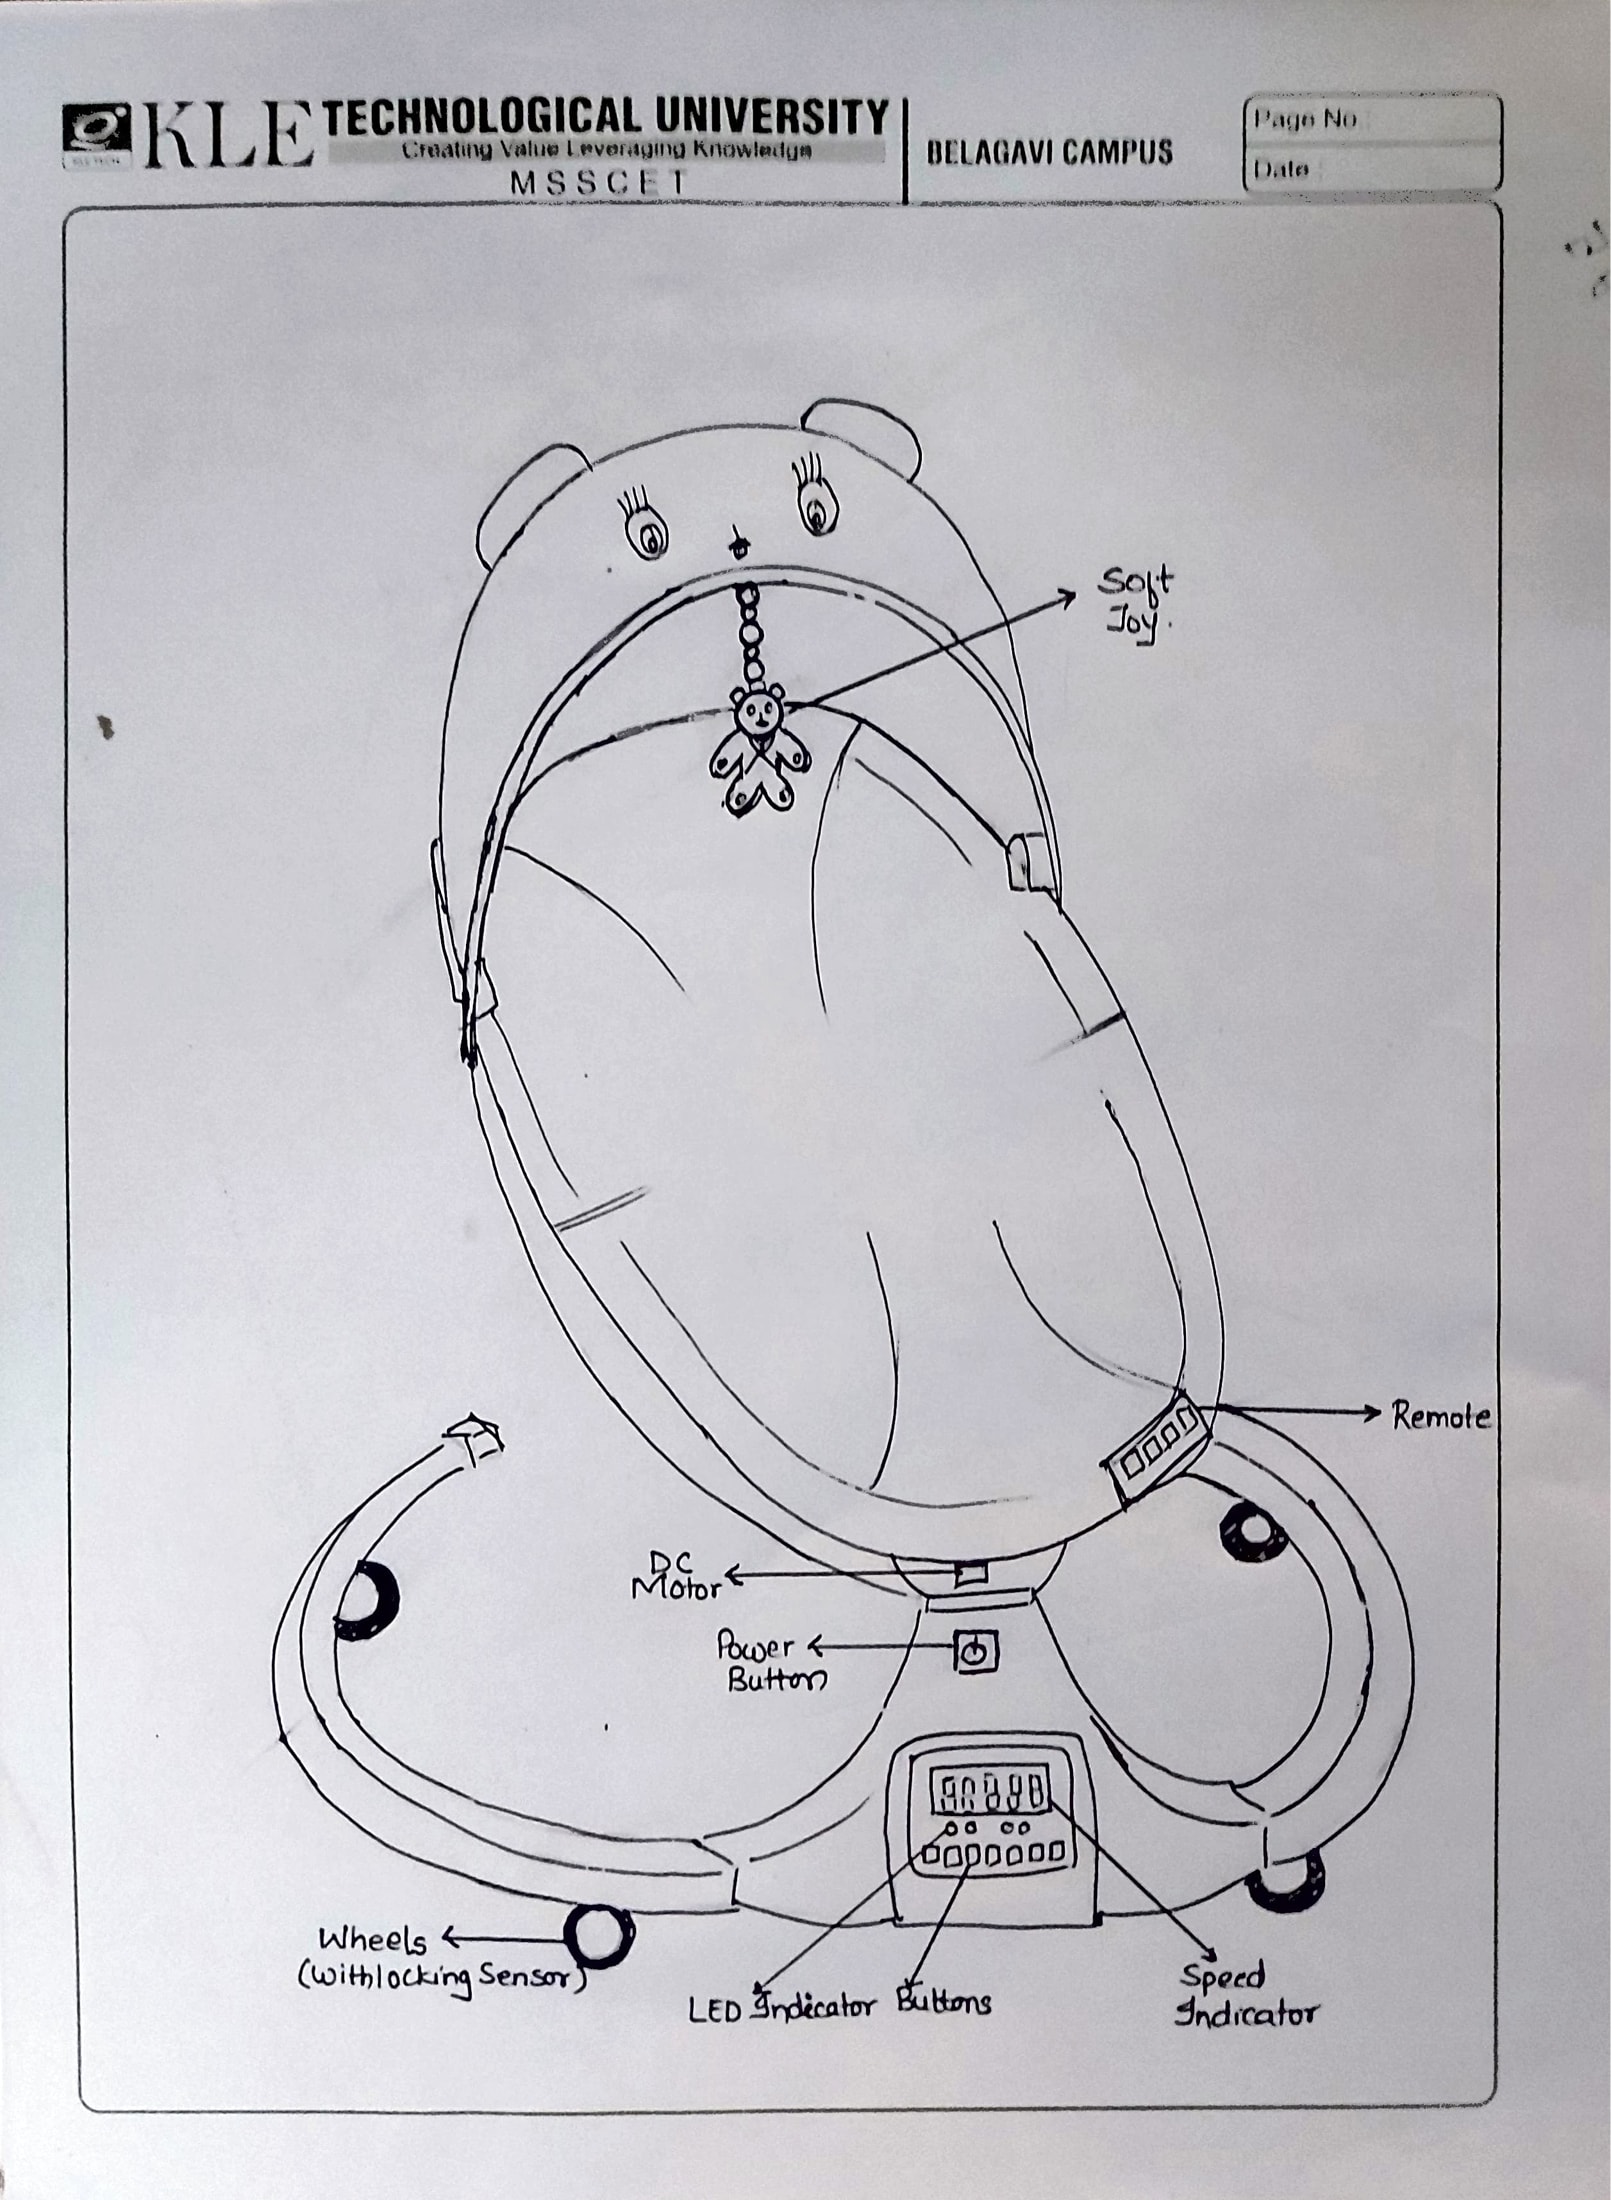 KLE TECHNOLOGICAL UNIVERSITY
Creating Value Leveraging Knowledge
MSSCET
BELAGAVI CAMPUS
Page No
Date
Soft
Toy.
Remote
DC
Motor
Power
Button
Wheels
(withlocking Sensor)
LED Indicator Buttons
Speed
Indicator